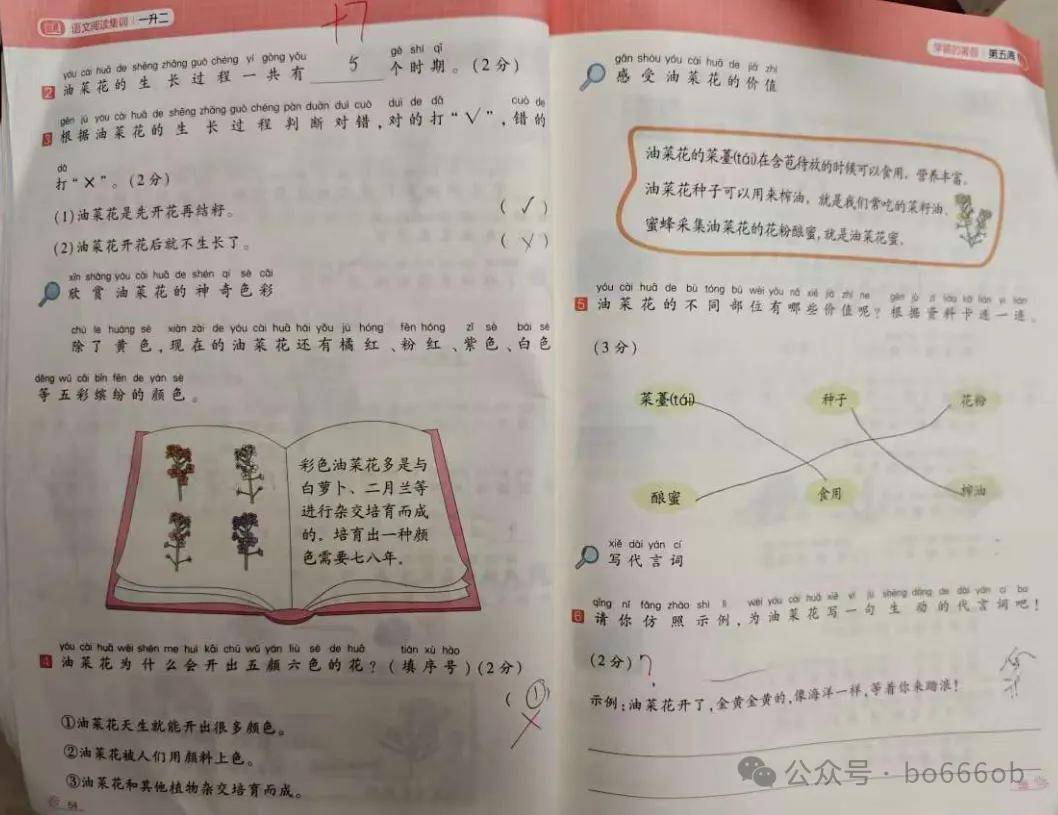 语文阅读集训 一升二
+7
yóu cài huā de shēng zhǎng guò chéng yí gòng yǒu gè shí qī
2 油菜花的生长过程一共有 5 个时期。(2分)
gēn jù yóu cài huā de shēng zhǎng guò chéng pàn duàn duì cuò duì de dǎ cuò de
3 根据油菜花的生长过程判断对错,对的打“√”,错的
dǎ
打“×”。(2分)
(1)油菜花是先开花再结籽。 (√)
(2)油菜花开花后就不生长了。 (×)
xīn shǎng yóu cài huā de shén qí sè cǎi
欣赏油菜花的神奇色彩
chú le huáng sè xiàn zài de yóu cài huā hái yǒu jú hóng fěn hóng zǐ sè bái sè
除了黄色,现在的油菜花还有橘红、粉红、紫色、白色
děng wǔ cǎi bīn fēn de yán sè
等五彩缤纷的颜色。
彩色油菜花多是与
白萝卜、二月兰等
进行杂交培育而成
的。培育出一种颜
色需要七八年。
yóu cài huā wèi shén me huì kāi chū wǔ yán liù sè de huā tián xù hào
4 油菜花为什么会开出五颜六色的花?(填序号)(2分)
(①)
①油菜花天生就能开出很多颜色。
②油菜花被人们用颜料上色。
③油菜花和其他植物杂交培育而成。
54
学霸的暑假 第五周
gǎn shòu yóu cài huā de jià zhí
感受油菜花的价值
油菜花的菜薹(tái)在含苞待放的时候可以食用,营养丰富。
油菜花种子可以用来榨油,就是我们常吃的菜籽油。
蜜蜂采集油菜花的花粉酿蜜,就是油菜花蜜。
yóu cài huā de bù tóng bù wèi yǒu nǎ xiē jià zhí ne gēn jù zī liào kǎ lián yì lián
5 油菜花的不同部位有哪些价值呢?根据资料卡连一连。
(3分)
菜薹(tái) 种子 花粉
酿蜜 食用 榨油
xiě dài yán cí
写代言词
qǐng nǐ fǎng zhào shì lì wèi yóu cài huā xiě yí jù shēng dòng de dài yán cí ba
6 请你仿照示例,为油菜花写一句生动的代言词吧!
(2分) ?
示例:油菜花开了,金黄金黄的,像海洋一样,等着你来踏浪!
公众号·bo666ob